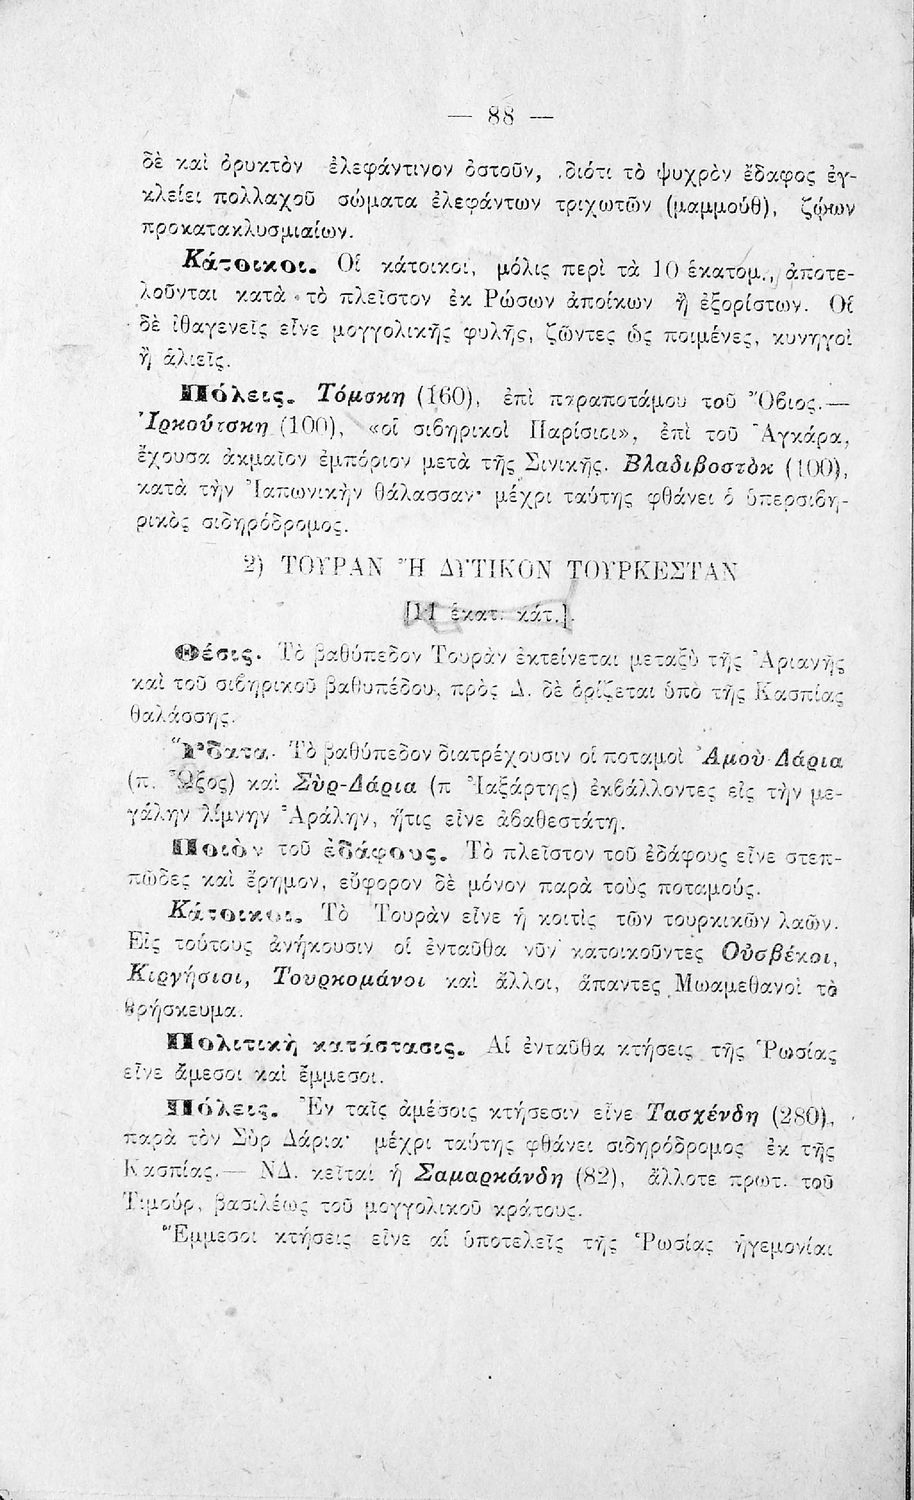 — 88 —
δὲ καὶ ὀρυκτὸν ἐλεφάντινον ὀστοῦν, διότι τὸ ψυχρὸν ἔδαφος ἐγ-
κλείει πολλαχοῦ σώματα ἐλεφάντων τριχωτῶν (μαμμούθ), ζῴων
προκατακλυσμιαίων.
Κάτοικοι. Οἱ κάτοικοι, μόλις περὶ τὰ 10 ἑκατομ., ἀποτε-
λοῦνται κατὰ τὸ πλεῖστον ἐκ Ρώσων ἀποίκων ἢ ἐξορίστων. Οἱ
δὲ ἰθαγενεῖς εἶνε μογγολικῆς φυλῆς, ζῶντες ὡς ποιμένες, κυνηγοὶ
ἢ ἁλιεῖς.
Πόλεις. Τόμσκη (160), ἐπὶ παραποτάμου τοῦ Ὄβιος.—
Ἰρκούτσκη (100), «οἱ σιβηρικοὶ Παρίσιοι», ἐπὶ τοῦ Ἀγκάρα,
ἔχουσα ἀκμαῖον ἐμπόριον μετὰ τῆς Σινικῆς. Βλαδιβοστὸκ (100),
κατὰ τὴν Ἰαπωνικὴν θάλασσαν· μέχρι ταύτης φθάνει ὁ ὑπερσιβη-
ρικὸς σιδηρόδρομος.
2) ΤΟΥΡΑΝ Ἢ ΔΥΤΙΚΟΝ ΤΟΥΡΚΕΣΤΑΝ
[11 ἑκατ. κάτ.].
Θέσις. Τὸ βαθύπεδον Τουρὰν ἐκτείνεται μεταξὺ τῆς Ἀριανῆς
καὶ τοῦ σιβηρικοῦ βαθυπέδου, πρὸς Δ. δὲ ὁρίζεται ὑπὸ τῆς Κασπίας
θαλάσσης.
Ὕδατα. Τὸ βαθύπεδον διατρέχουσιν οἱ ποταμοὶ Ἀμοὺ Δάρια
(π. Ὦξος) καὶ Σὺρ-Δάρια (π Ἰαξάρτης) ἐκβάλλοντες εἰς τὴν με-
γάλην λίμνην Ἀράλην, ἥτις εἶνε ἀβαθεστάτη.
Ποιὸν τοῦ ἐδάφους. Τὸ πλεῖστον τοῦ ἐδάφους εἶνε στεπ-
πῶδες καὶ ἔρημον, εὔφορον δὲ μόνον παρὰ τοὺς ποταμούς.
Κάτοικοι. Τὸ Τουρὰν εἶνε ἡ κοιτὶς τῶν τουρκικῶν λαῶν.
Εἰς τούτους ἀνήκουσιν οἱ ἐνταῦθα νῦν κατοικοῦντες Οὐσβέκοι,
Κιργήσιοι, Τουρκομάνοι καὶ ἄλλοι, ἅπαντες Μωαμεθανοὶ τὸ
θρήσκευμα.
Πολιτικὴ κατάστασις. Αἱ ἐνταῦθα κτήσεις τῆς Ῥωσίας
εἶνε ἄμεσοι καὶ ἔμμεσοι.
Πόλεις. Ἐν ταῖς ἀμέσοις κτήσεσιν εἶνε Τασχένδη (280),
παρὰ τὸν Σὺρ Δάρια· μέχρι ταύτης φθάνει σιδηρόδρομος ἐκ τῆς
Κασπίας.— ΝΔ. κεῖται ἡ Σαμαρκάνδη (82), ἄλλοτε πρωτ. τοῦ
Τιμούρ, βασιλέως τοῦ μογγολικοῦ κράτους.
Ἔμμεσοι κτήσεις εἶνε αἱ ὑποτελεῖς τῆς Ῥωσίας ἡγεμονίαι